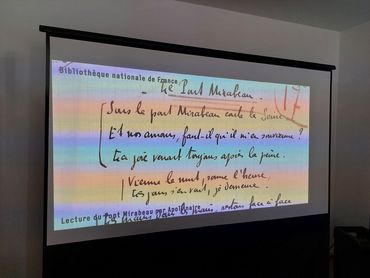 Bibliothèque nationale de France
Le Pont Mirabeau.
17
Sous le pont Mirabeau coule la Seine
Et nos amours, faut-il qu'il m'en souvienne ?
La joie venait toujours après la peine.
Vienne la nuit, sonne l'heure,
Les jours s'en vont, je demeure.
Les mains dans les mains, restons face à face
Lecture du Pont Mirabeau par Apollinaire